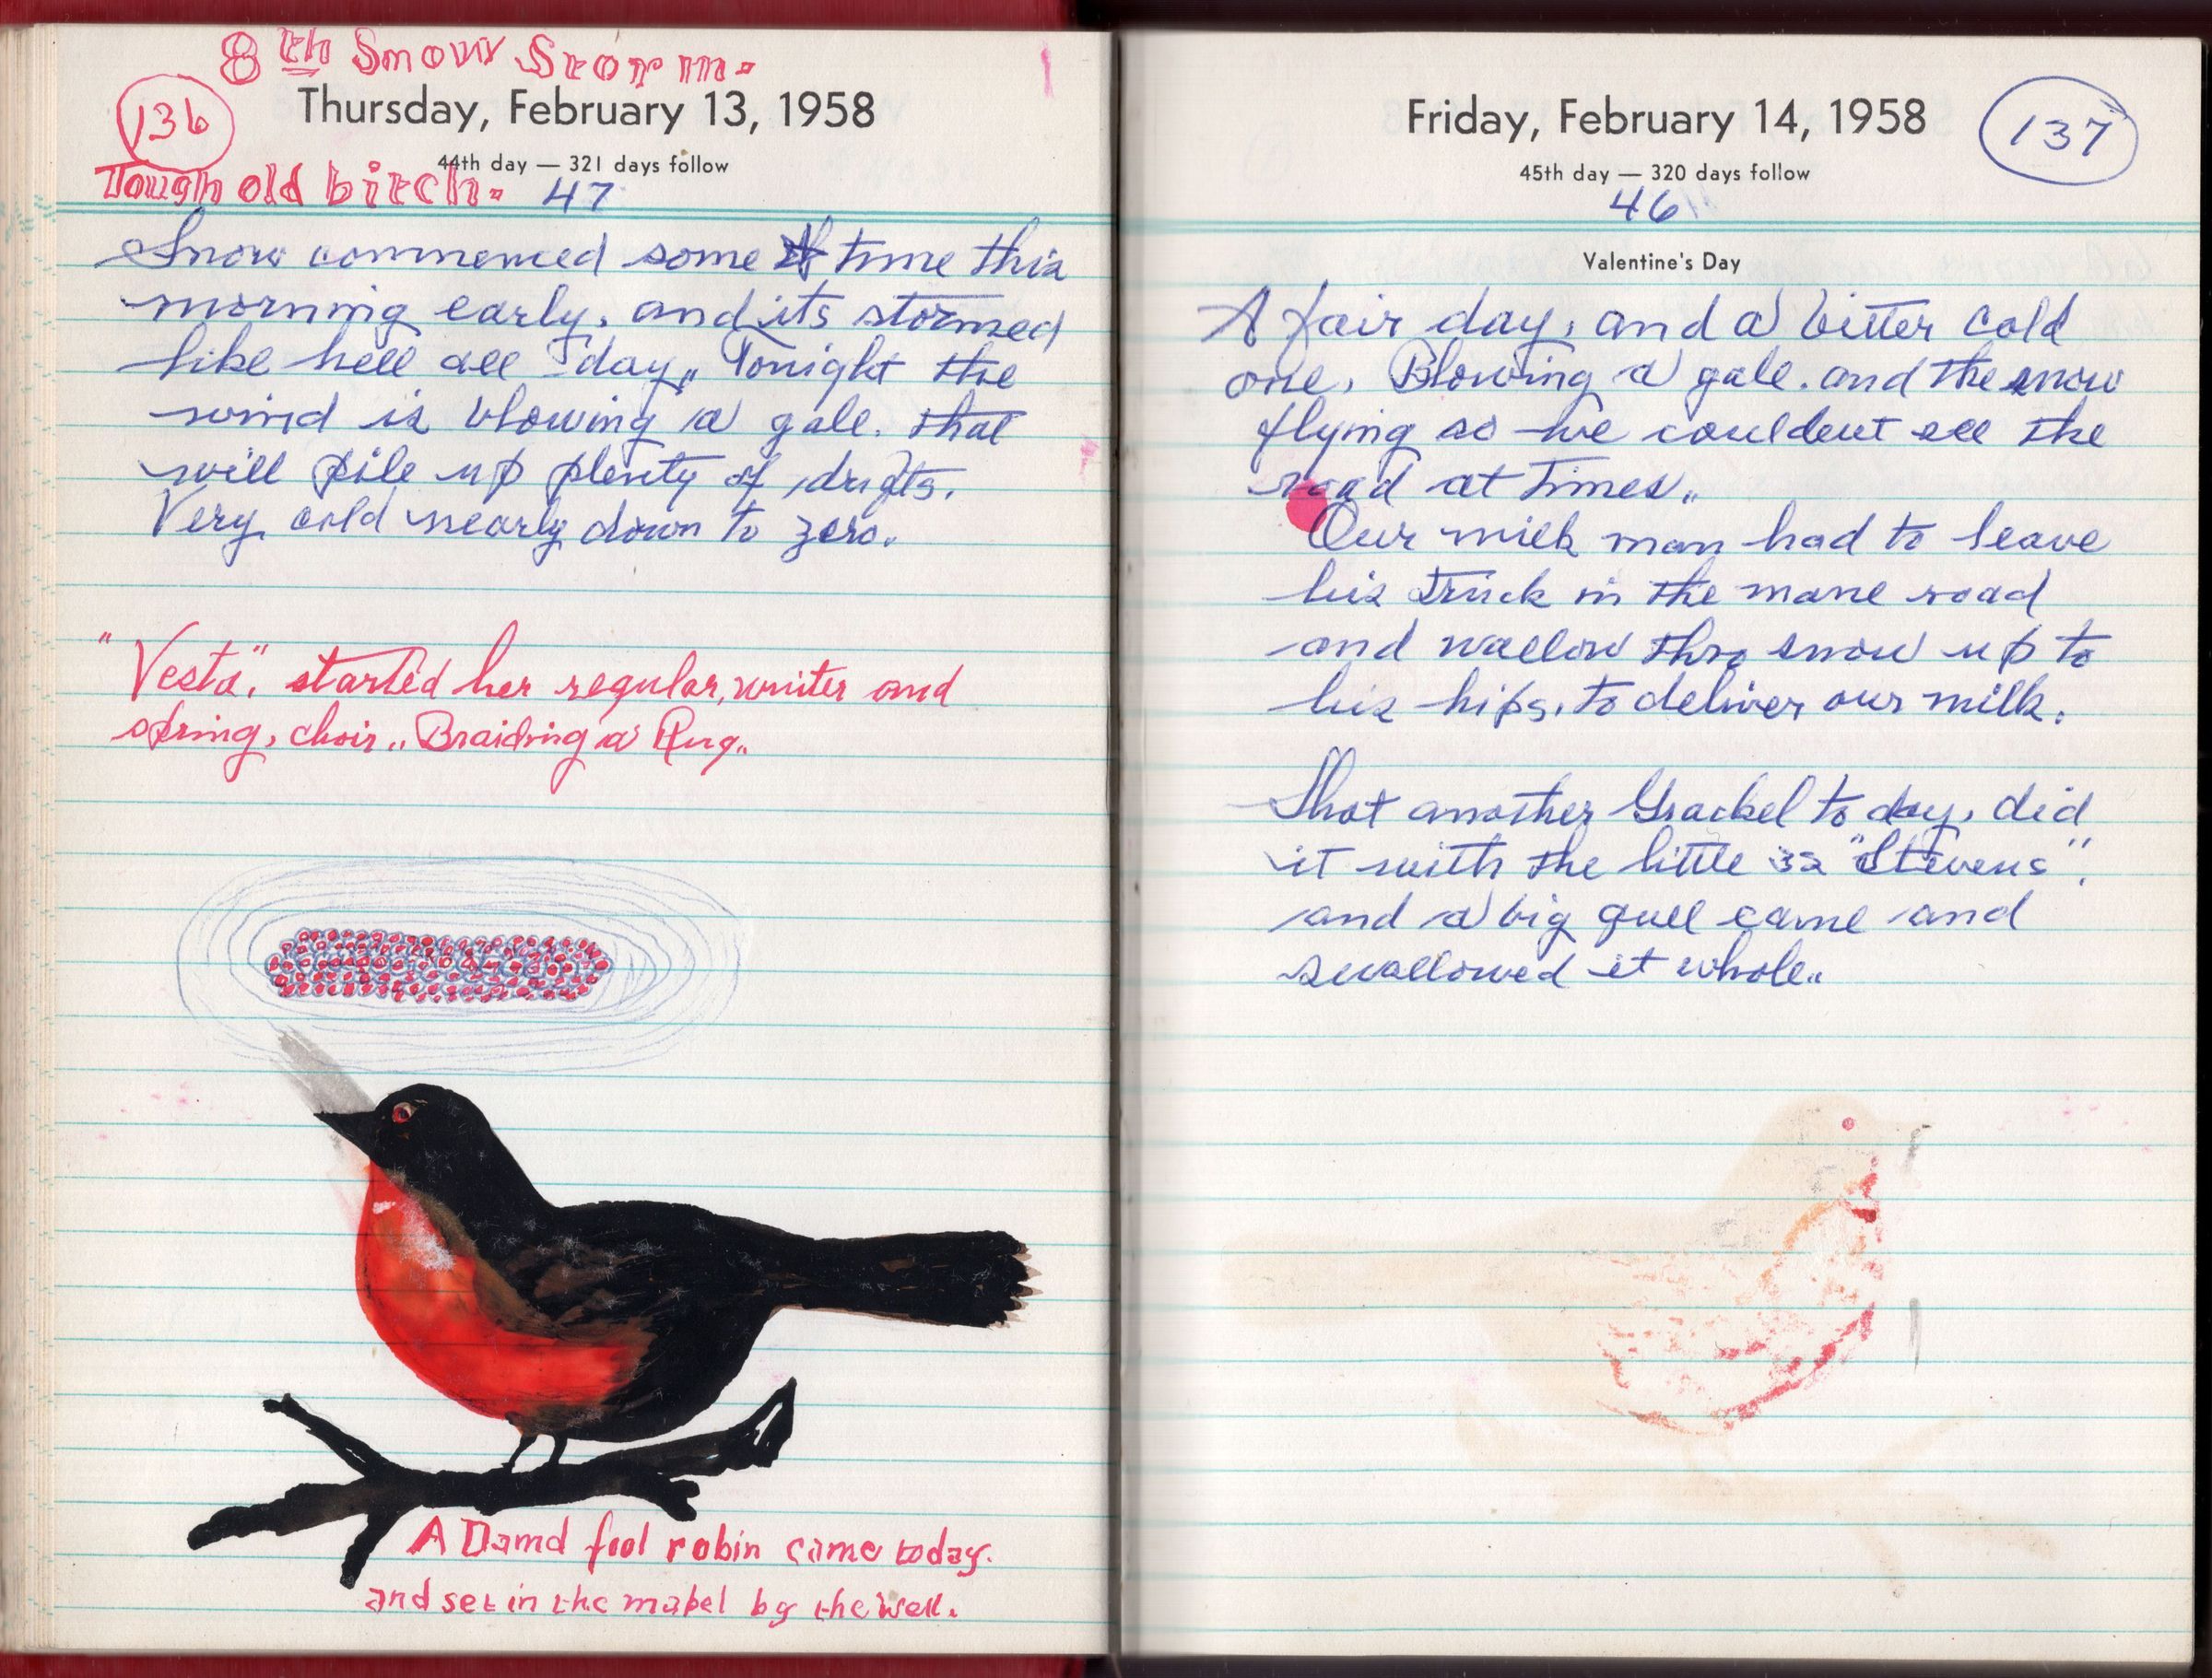 8th Snow Storm.
136
Thursday, February 13, 1958
44th day — 321 days follow
Tough old bitch.
47
Snow commenced some time this
morning early, and its stormed
like hell all day,, Tonight the
wind is blowing a gale. that
will pile up plenty of drifts.
Very cold nearly down to zero.
"Vesta", started her regular, winter and
spring, choir,, Braiding a Rug,,
A Damd fool robin came today.
and set in the mapel by the well.
137
Friday, February 14, 1958
45th day — 320 days follow
46
Valentine's Day
A fair day, and a bitter cold
one, Blowing a gale. and the snow
flying so we couldent see the
road at times,,
Our milk man had to leave
his truck in the mane road
and wallow thro snow up to
his hips, to deliver our milk.
Shot another Grackel to day, did
it with the little 32 "Stevens",
and a big gull came and
swallowed it whole,,